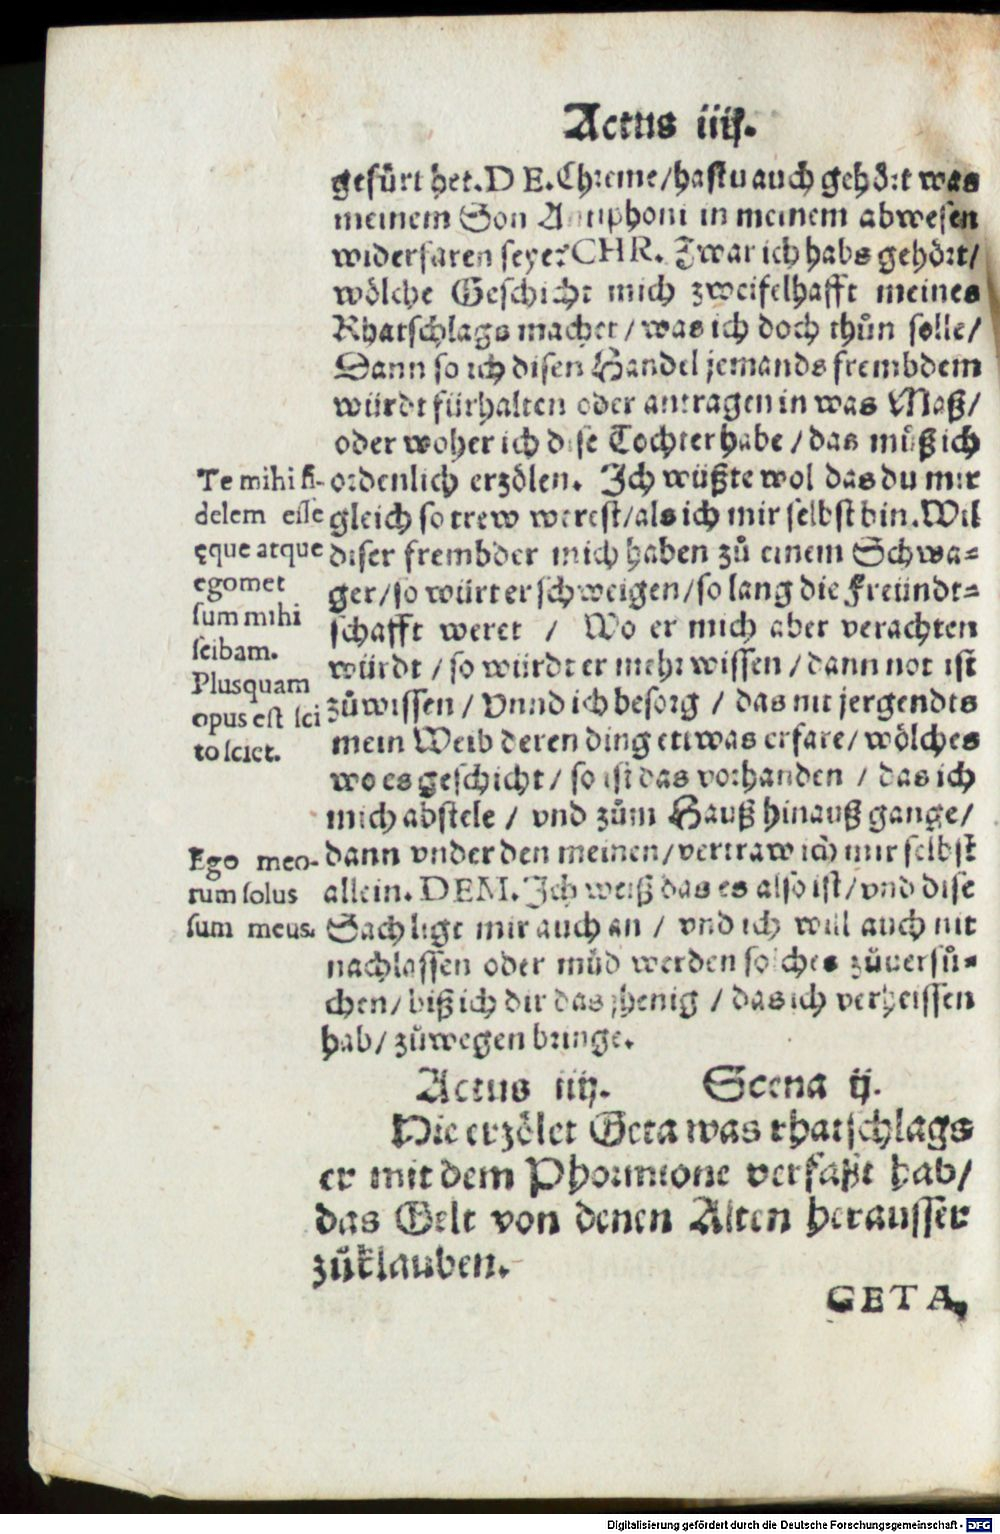 Actus iiij.
gefürt het. DE. Chreme/hastu auch gehört was
meinem Son Antiphoni in meinem abwesen
widerfaren seye? CHR. Zwar ich habs gehört/
wölche Geschicht mich zweifelhafft meines
Rhatschlags machet / was ich doch thůn solle/
Dann so ich disen Handel jemands frembdem
würdt fürhalten oder antragen in was Maß/
oder woher ich dise Tochter habe / das můß ich
ordenlich erzölen. Ich wüßte wol das du mir
gleich so trew werest/als ich mir selbst bin. Wil
diser frembder mich haben zů einem Schwa=
ger/so würt er schweigen/so lang die Freündt=
schafft weret / Wo er mich aber verachten
würdt / so würdt er mehr wissen / dann not ist
zůwissen / Vnnd ich besorg / das nit jergendts
mein Weib deren ding ettwas erfare/ wölches
wo es geschicht / so ist das vorhanden / das ich
mich abstele / vnd zům Hauß hinauß gange/
dann vnder den meinen/vertraw ich mir selbst
allein. DEM. Ich weiß das es also ist/vnd dise
Sach ligt mir auch an / vnd ich will auch nit
nachlassen oder müd werden solches zůuersů=
chen/ biß ich dir das jhenig / das ich verheissen
hab/ zůwegen bringe.
Te mihi fi-
delem esse
ęque atque
egomet
sum mihi
scibam.
Plusquam
opus est sci
to sciet.
Ego meo-
rum solus
sum meus.
Actus iiij. Scena ij.
Hie erzölet Geta was rhatschlags
er mit dem Phormione verfaßt hab/
das Gelt von denen Alten herausser
zůklauben.
GETA,
Digitalisierung gefördert durch die Deutsche Forschungsgemeinschaft - DFG